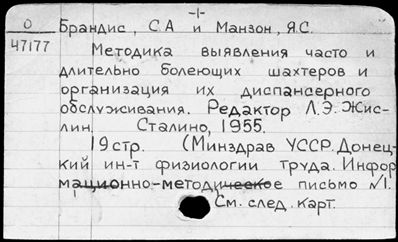 -1-
О Брандис, С.А и Манзон, Я.С.
47177
Методика выявления часто и
длительно болеющих шахтеров и
организация их диспансерного
обслуживания. Редактор Л.Э.Жис-
лин. Сталино, 1955.
19 стр. (Минздрав УССР. Донец-
кий ин-т физиологии труда. Инфор
мационно-методическое письмо №1.
См. след. карт.